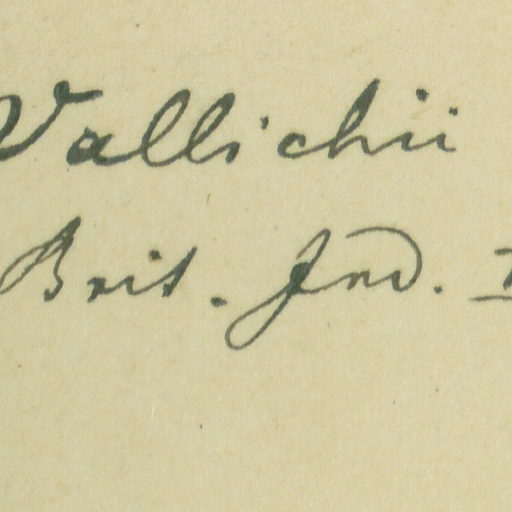 Wallichii
Brit. Ind.